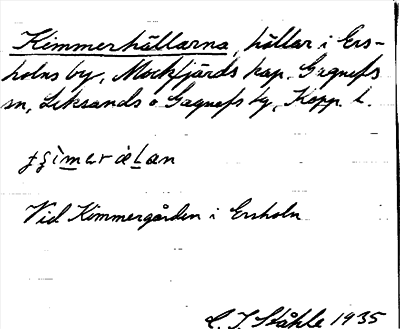 Kimmerhällarna, hällar i Ers-
holns by, Mockfjärds kap. Gagnefs
sn, Leksands o Gagnefs tg, Kopp. l.
Vid Kimmergården i Ersholn
C. I. Ståhle 1935